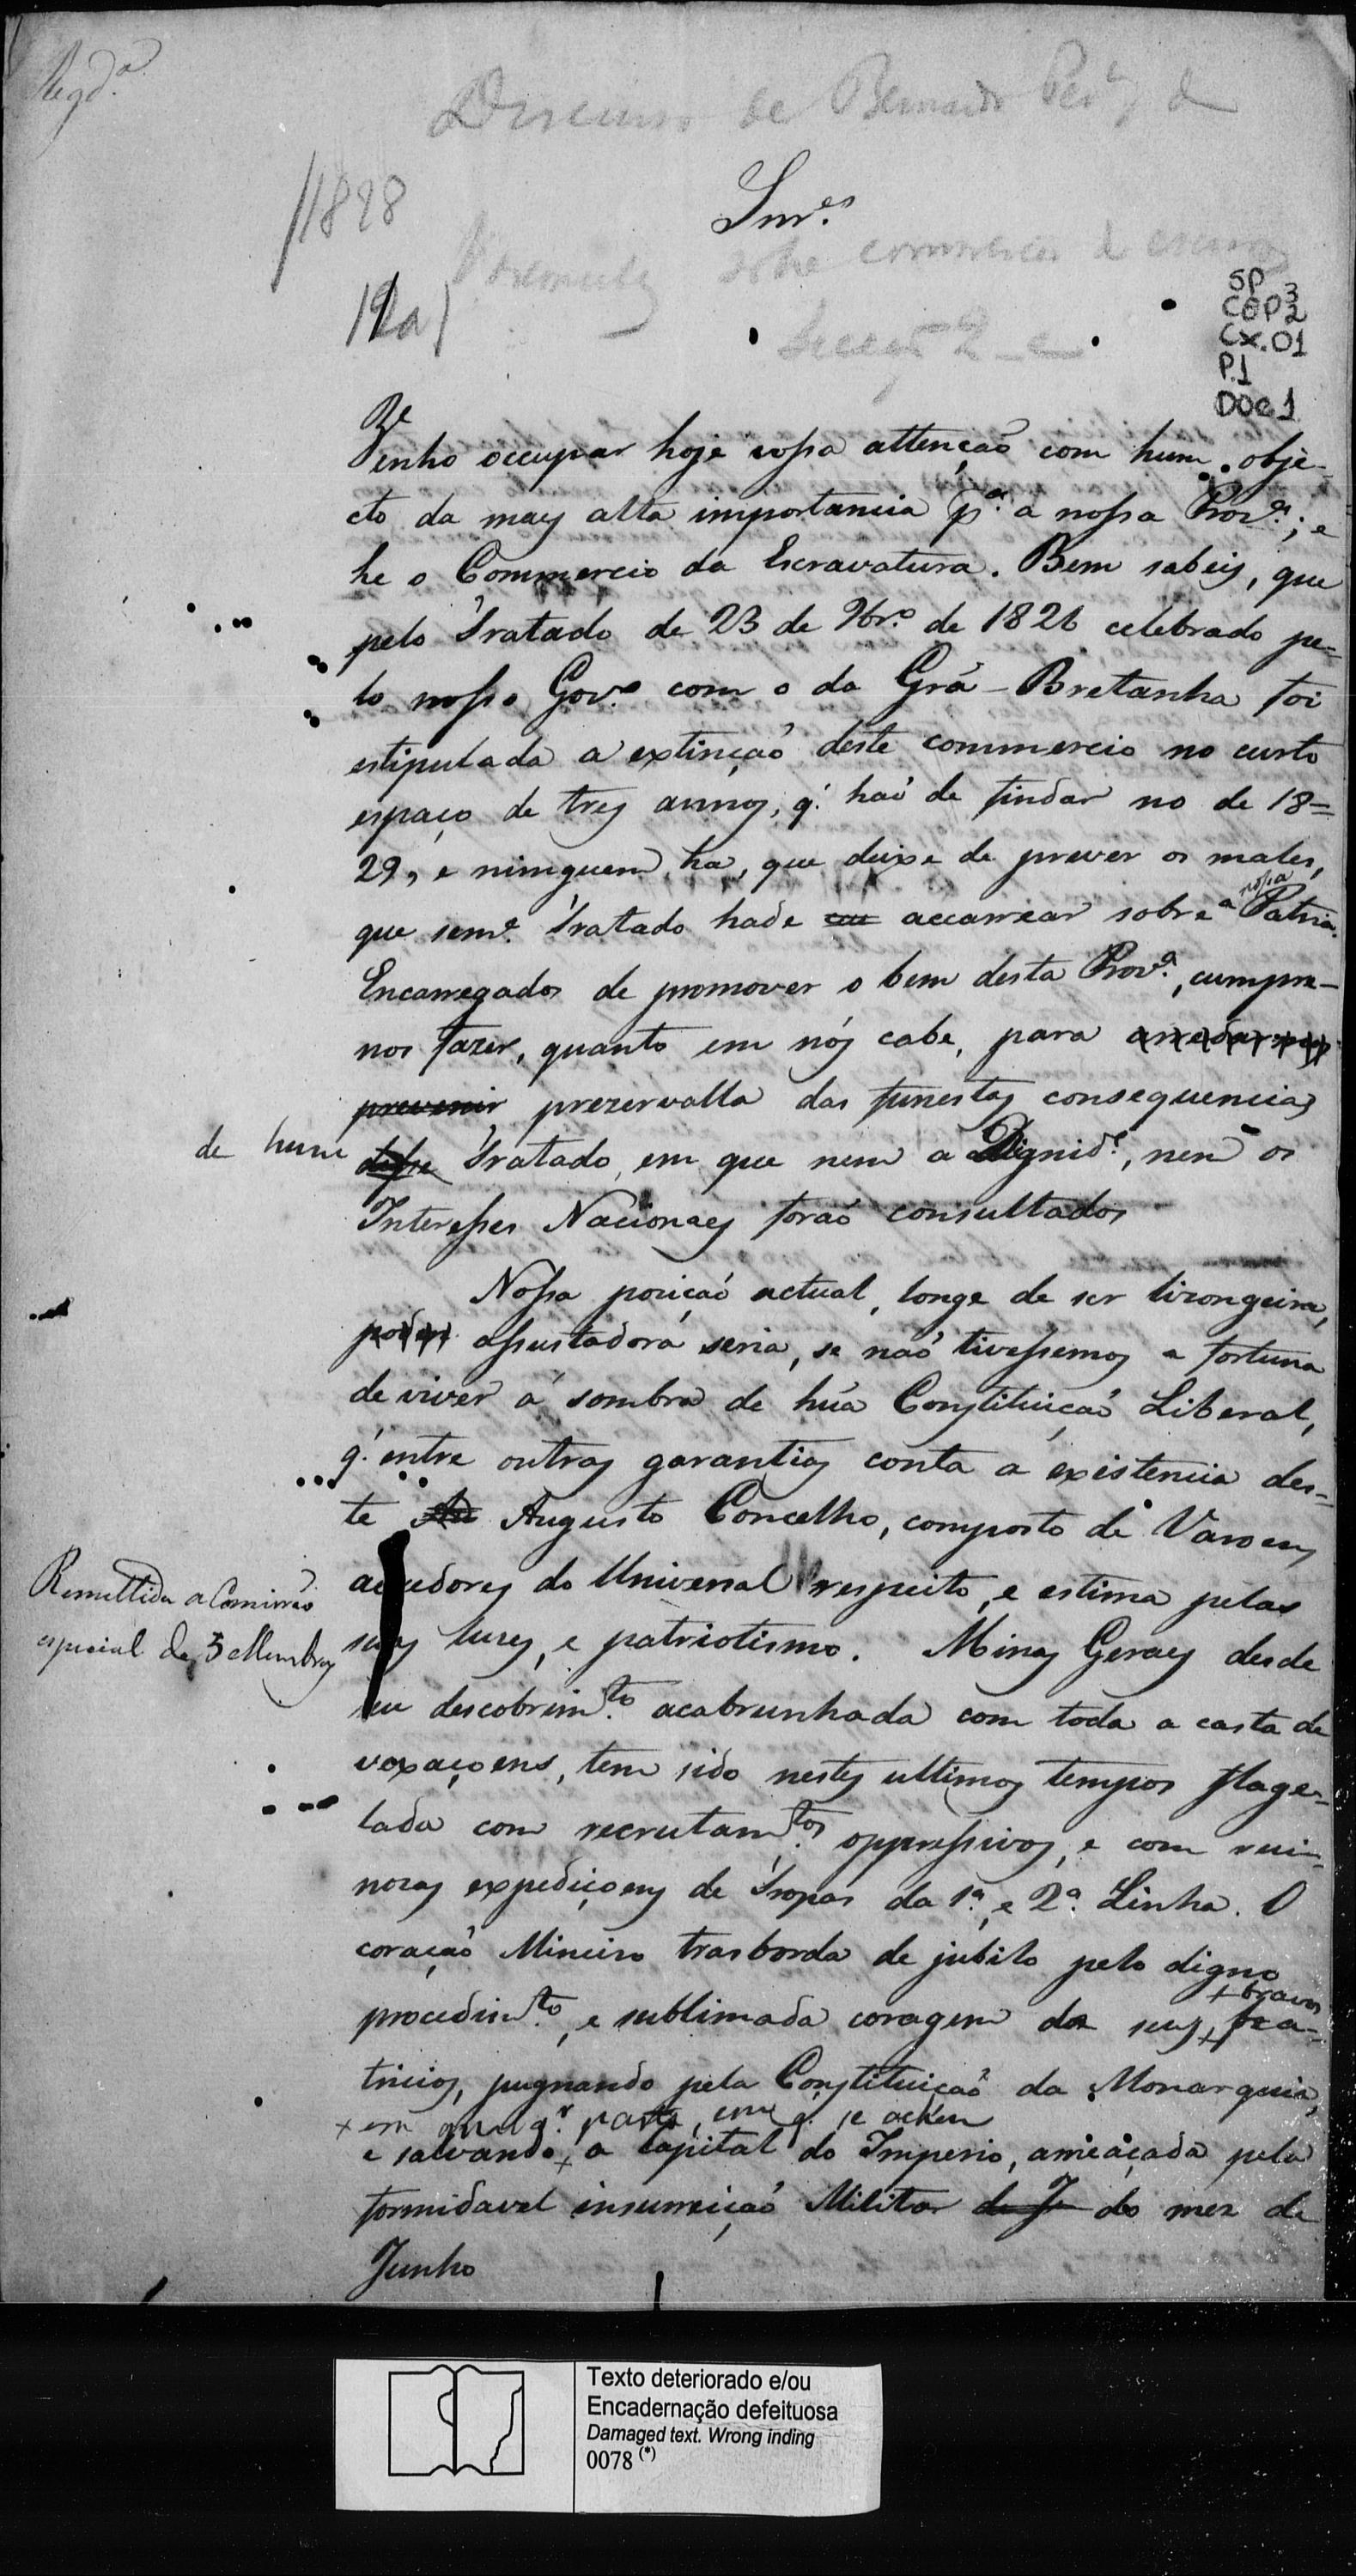 Regd.ª
Discurso de Bernardo
1828
Snr.es
sobre commercio de
12a)
SP 3
COP2
Cx.01
P.1
DOC 1
Venho occupar hoje vossa attençaõ com hum obje-
cto da mays alta importancia p.ª a nossa Prov.ª; e
he o Commercio da Escravatura. Bem sabeis, que
pelo Tratado de 23 de 9br.º de 1826 celebrado pe-
lo nosso Gov.º com o da Grã-Bretanha foi
estipulada a extinçaõ deste commercio no curto
espaço de tres annos, q.' haõ de findar no de 18=
29, e ninguem ha, que deixe de prever os males,
que sem.e Tratado hade accarrear sobre a nossa Patria.
Encarregados de promover o bem desta Prov.ª, cumpre-
nos fazer, quanto em nós cabe, para
prevenir prezervalla das funestas consequencias
de hum desse Tratado, em que nem a Dignid.e, nem os
Interesses Nacionaes foraõ consultados
Nossa poziçaõ actual, longe de ser lizongeira,
assustadora seria, se naõ tivessemos a fortuna
de viver á sombra de hũa Constituiçaõ Liberal,
q.' entre outras garantias conta a existencia des-
te Au Augusto Concelho, composto de Varoens
acredores do Universal respeito, e estima pelas
suas luzes, e patriotismo. Minas Geraes desde
seu descobrim.to acabrunhada com toda a casta de
vexaçoens, tem sido nestes ultimos tempos flage-
lada com recrutam.tos oppressivos, e com rui-
nozas expediçoens de Tropas da 1ª e 2ª Linha. O
coraçaõ Mineiro trasborda de jubilo pelo digno
procedim.to, e sublimada coragem de seus + bravos
tricios, pugnando pela Constituiçaõ da Monarquia,
+ em qualq.r parte, em q.' se achem
e salvando + a Capital do Imperio, ameaçada pela
formidavel insurreiçaõ Militar de J do mez de
Junho
Remettida a Comissaõ
especial de 3 Membros
Texto deteriorado e/ou
Encadernação defeituosa
Damaged text. Wrong inding
0078 (*)